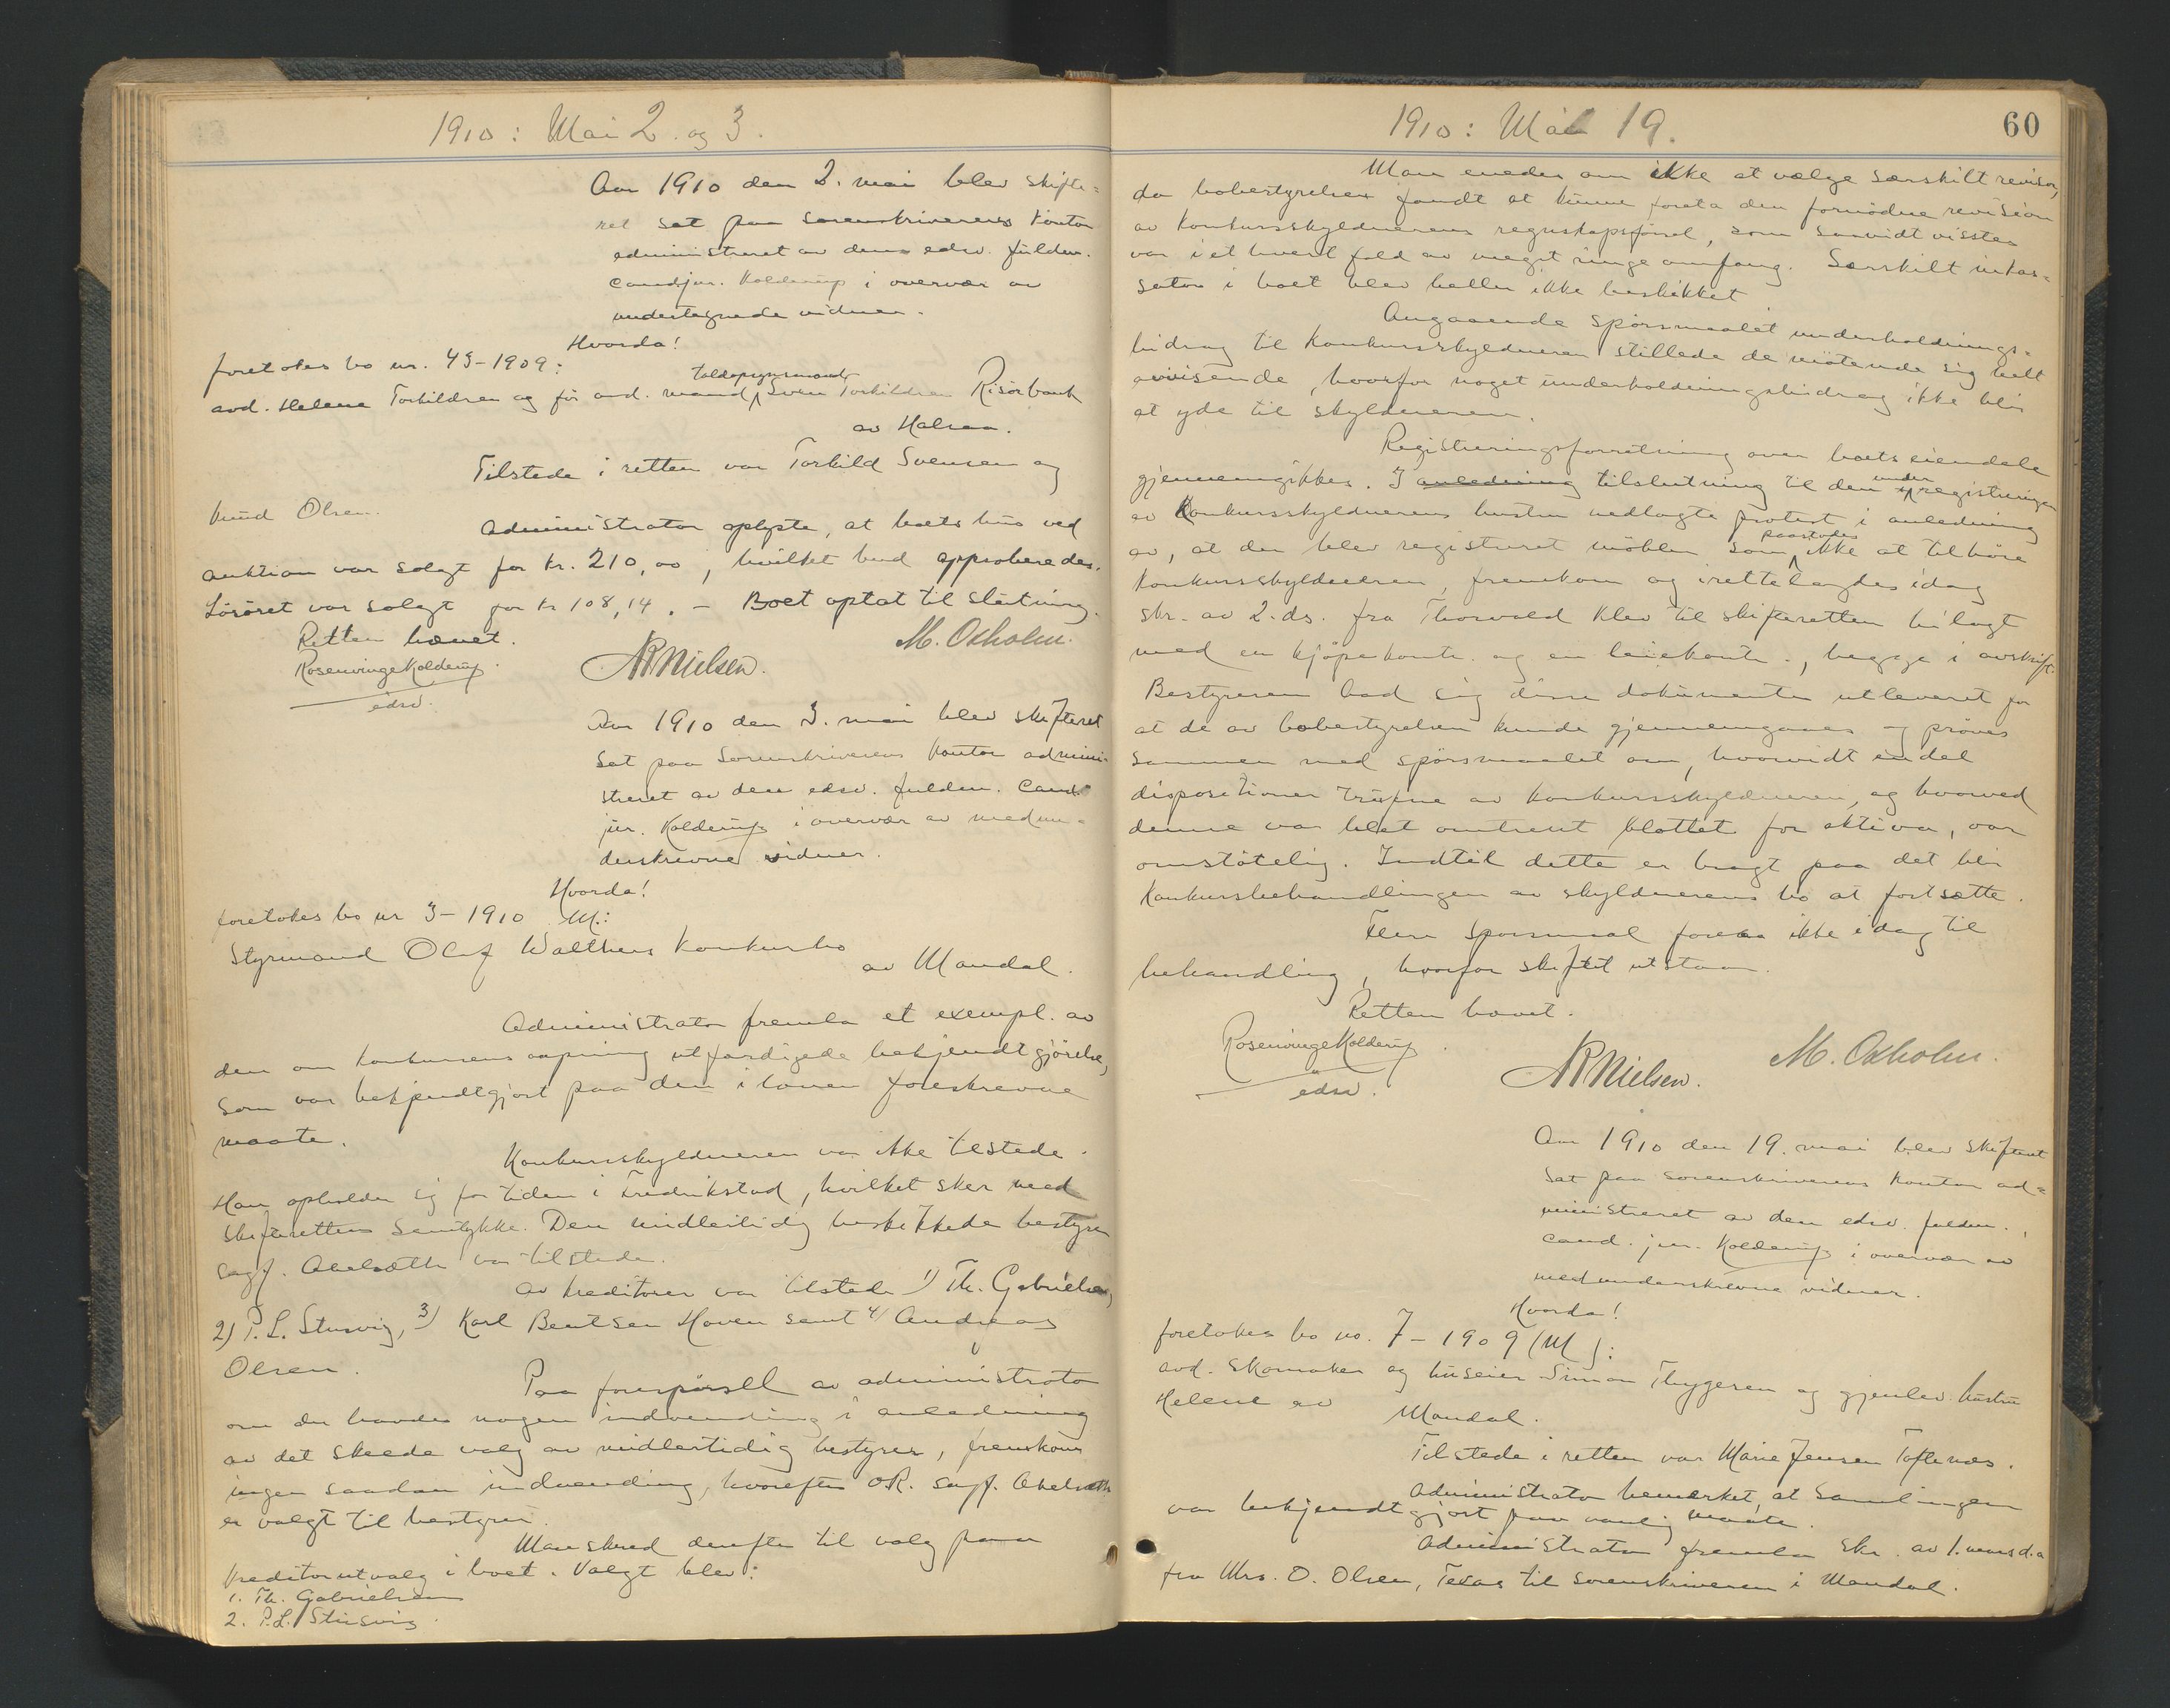 1910: Mai 2. og 3.
Aar 1910 den 2. mai blev skifte-
ret sat paa sorenskriverens kontor
administreret av dens edsv. fuldm.
cand. jur. Kolderup i overvær av
undertegnede vidner.
Hvorda!
foretokes bo nr. 43-1909:
avd. Helene Torkildsen og før avd. mand, toldopsynsmand Sven Torkildsen Risørbank
av Halsen.
Tilstede i retten var Torkild Svensen og
Knud Olsen.
Administrator oplyste, at boets hus ved
auktion var solgt for kr. 210,00, hvilket bud approberedes.
Løsøret var solgt for kr 108,14. - Boet optat til slutning.
Retten hævet.
Rosenvinge Kolderup
edsv.
NRNielsen.
M. Oxholm.
Aar 1910 den 3. mai blev skifteret
sat paa Sorenskriverens kontor admini-
streret av den edsv. fuldm. cand.
jur. Kolderup i overvær av medun-
derskrevne vidner.
Hvorda!
foretokes bo nr 3-1910 M.:
Styrmand Olaf Walthers konkursbo
av Mandal.
Administrator fremla et exempl. av
den om konkursens aapning utfærdigede bekjendtgjørelse,
som var bekjendtgjort paa den i loven foreskrevne
maate.
Konkursskyldneren var ikke tilstede.
Han opholder sig for tiden i Fredrikstad, hvilket sker med
skifterettens samtykke. Den midlertidig beskikkede bestyrer
sagf. Akelsæth var tilstede.
Av kreditorer var tilstede 1) Th. Gabrielsen,
2) P. L. Stusvig, 3) Karl Bentsen Hoven samt 4/ Andreas
Olsen.
Paa forespørsell av administrator
om der havdes nogen indvending i anledning
av det skeede valg av midlertidig bestyrer, fremkom
ingen saadan indvending, hvorefter OR. sagf. Akelsæth
er valgt til bestyrer.
Man skred derefter til valg paa
kreditorutvalg i boet. Valgt blev:
1. Th. Gabrielsen
2. P.L. Stusvig.
1910: Mai 19.
60
Man enedes om ikke at vælge særskilt revisor,
da bobestyrelsen fandt at kunne foreta den fornødne revision
av konkursskyldnerens regnskapsførsel, som saavidt vistes
var i et hvert fald av meget ringe omfang. Særskilt inkas-
sator i boet blev heller ikke beskikket.
Angaaende spørsmaalet underholdnings-
bidrag til konkursskyldneren stillede de møtende sig helt
avvisende, hvorfor noget underholdningsbidrag ikke blir
at yde til skyldneren.
Registreringsforretning over boets eiendele
gjennemgikkes. I anledning tilslutning til den under registreringen
av konkursskyldnerens hustru nedlagte protest i anledning
av, at der blev registreret møbler som paastodes ikke at tilhøre
konkursskyldneren, fremkom og irettelagdes idag
skr. av 2. ds. fra Thorvald Klev til skifteretten bilagt
med en kjøpekontr. og en leiekontr., begge i avskrift.
Bestyreren bad sig disse dokumenter utleveret for
at de av bobestyrelsen kunde gjennemgaaes og prøves
sammen med spørsmaalet om, hvorvidt endel
dispositioner trufne av konkursskyldneren, og hvorved
denne var blet omtrent blottet for aktiva, var
omstøtelig. Indtil dette er bragt paa det blir
konkursbehandlingen av skyldnerens bo at fortsætte.
Flere spørsmaal forelaa ikke idag til
behandling, hvorfor skiftet utstaar.
Retten hævet.
Rosenvinge Kolderup
edsv.
NRNielsen.
M. Oxholm.
Aar 1910 den 19. mai blev skifteret
sat paa sorenskriverens kontor ad-
ministreret av den edsv. fuldm.
cand. jur. Kolderup i overvær av
medunderskrevne vidner.
Hvorda!
foretokes bo no. 7-1909 (M):
avd. skomaker og huseier Simon Thygesen og gjenlev. hustru
Helene av Mandal.
Tilstede i retten var Marie Jensen Toftenes.
Administrator bemerket, at Samlingen
var bekjendtgjort paa vanlig maate.
Administrator fremla skr. av 1. mars d.a
fra Mrs. O. Olsen, Texas til sorenskriveren i Mandal.